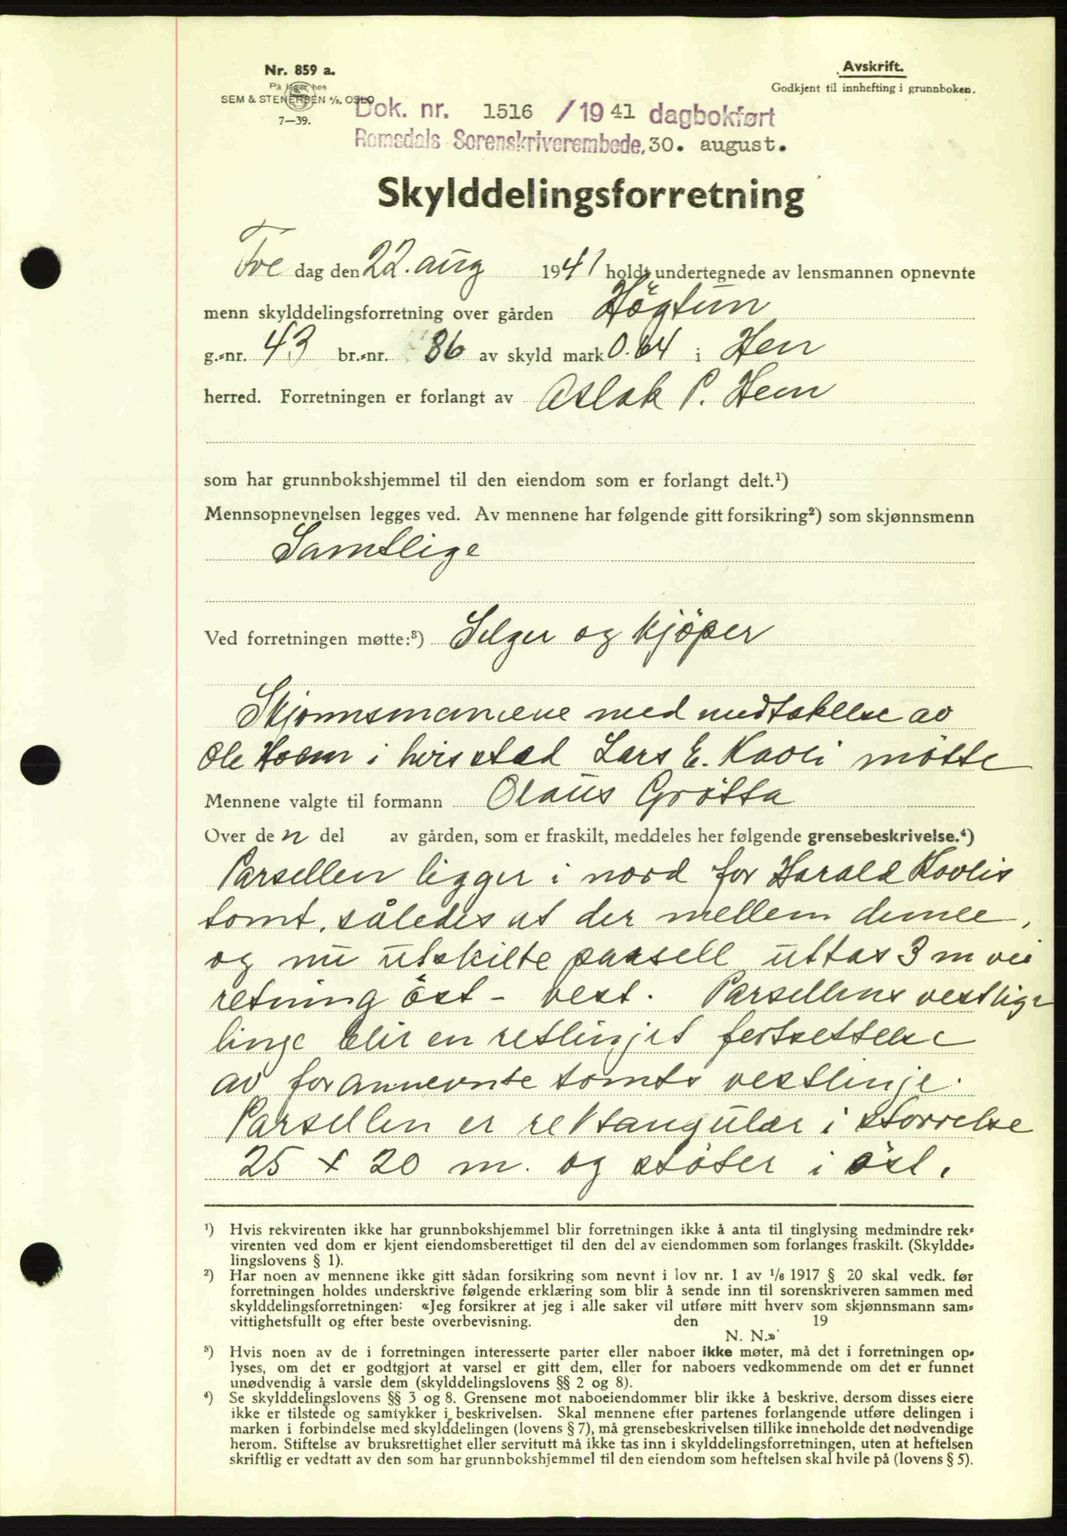 Nr. 859 a.
På lager hos
SEM & STENERSEN A/S, OSLO
7—39.
Avskrift.
Godkjent til innhefting i grunnboken.
Dok. nr. 1516 /1941 dagbokført
Romsdals Sorenskriverembede, 30. august.
Skylddelingsforretning
Fre dag den 22. aug 1941 holdt undertegnede av lensmannen opnevnte
menn skylddelingsforretning over gården Høgtun
g.-nr. 43 br.-nr. 86 av skyld mark 0.64 i Hen
herred. Forretningen er forlangt av Aslak P. Hem
som har grunnbokshjemmel til den eiendom som er forlangt delt.¹)
Mennsopnevnelsen legges ved. Av mennene har følgende gitt forsikring²) som skjønnsmenn
Samtlige
Ved forretningen møtte:³) Selger og kjöper
Skjønnsmannene med undtakelse av
Ole i hvis sted Lars E. Kavli møtte
Mennene valgte til formann Olaus Grötta
Over den del av gården, som er fraskilt, meddeles her følgende grensebeskrivelse.⁴)
Parsellen ligger i nord for Harald Kavlis
tomt, således at der mellem denne,
og nu utskilte parsell uttas 3 m vei
retning öst - vest. Parsellens vestlige
linje blir en retlinjet fortsettelse
av forannevnte tomts vestlinje.
Parsellen er rektangulær i størrelse
25 x 20 m. og støter i øst.
¹) Hvis rekvirenten ikke har grunnbokshjemmel blir forretningen ikke å anta til tinglysing medmindre rek-
virenten ved dom er kjent eiendomsberettiget til den del av eiendommen som forlanges fraskilt. (Skyldde-
lingslovens § 1).
²) Har noen av mennene ikke gitt sådan forsikring som nevnt i lov nr. 1 av 1/6 1917 § 20 skal vedk. før
forretningen holdes underskrive følgende erklæring som blir å sende inn til sorenskriveren sammen med
skylddelingsforretningen: «Jeg forsikrer at jeg i alle saker vil utføre mitt hverv som skjønnsmann sam-
vittighetsfullt og efter beste overbevisning. den 19
N. N.»
³) Hvis noen av de i forretningen interesserte parter eller naboer ikke møter, må det i forretningen op-
lyses, om det er godtgjort at varsel er gitt dem, eller for naboers vedkommende om det er funnet
unødvendig å varsle dem (skylddelingslovens §§ 2 og 8).
⁴) Se skylddelingslovens §§ 3 og 8. Grensene mot naboeiendommer blir ikke å beskrive, dersom disses eiere
ikke er tilstede og samtykker i beskrivelsen. Skal mennene efter partenes forlangende utføre delingen i
marken i forbindelse med skylddelingen (lovens § 7), må grensebeskrivelsen tillike inneholde det nødvendige
herom. Stiftelse av bruksrettighet eller servitutt må ikke tas inn i skylddelingsforretningen, uten at heftelsen
skriftlig er vedtatt av den som har grunnbokshjemmel til den eiendom som heftelsen skal hvile på (lovens § 5).